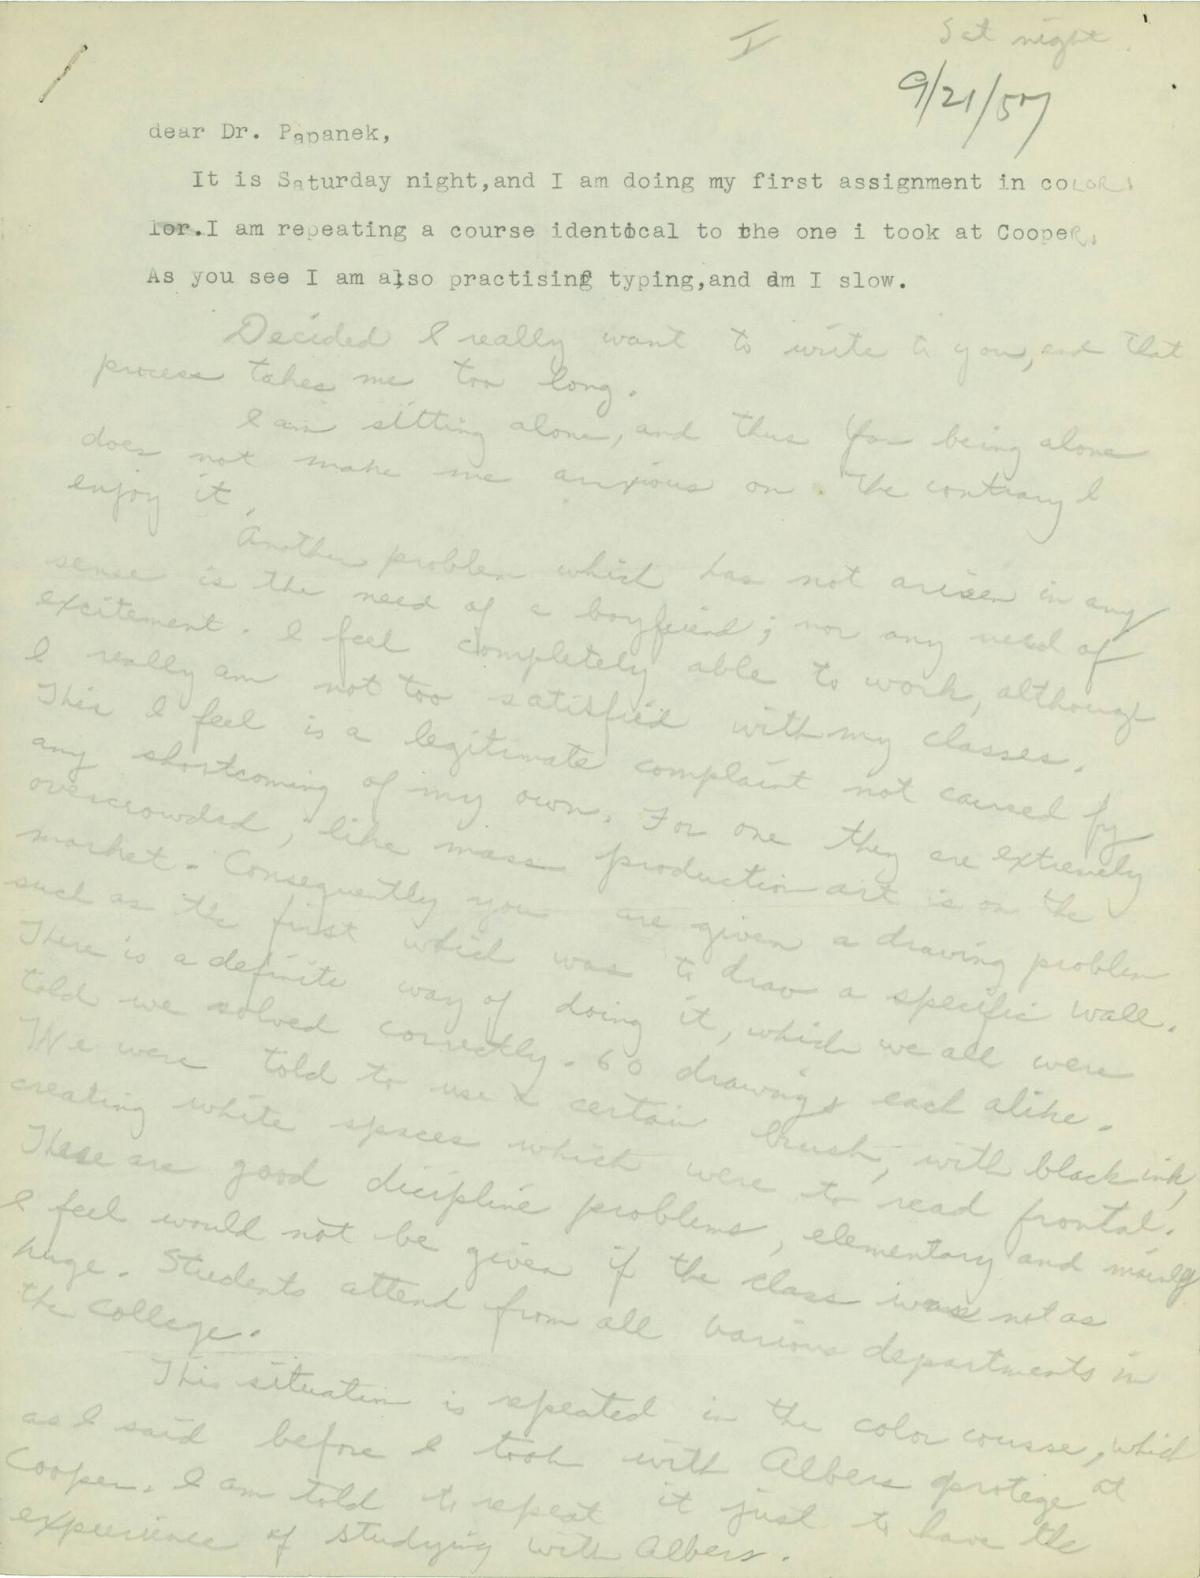 I
Sat night.
9/21/57
dear Dr. Papanek,
It is Saturday night,and I am doing my first assignment in coLOR.
lor.I am repeating a course identical to the one i took at CoopeR.
As you see I am also practising typing,and am I slow.
Decided I really want to write to you, and that
process takes me too long.
I am sitting alone, and thus far being alone
does not make me anxious on the contrary I
enjoy it.
Another problem which has not arisen in any
sense is the need of a boyfriend; nor any need of
excitement. I feel completely able to work, although
I really am not too satisfied with my classes.
This I feel is a legitimate complaint not caused by
any shortcoming of my own. For one they are extremely
overcrowded, like mass production art is on the
market. Consequently you are given a drawing problem
such as the first which was to draw a specific wall.
There is a definite way of doing it, which we all were
told we solved correctly. 60 drawings each alike.
We were told to use a certain brush, with black ink,
creating white spaces which were to read frontal.
These are good dicipline problems, elementary and mainly
I feel would not be given if the class was not as
huge. Students attend from all various departments in
the college.
This situation is repeated in the color course, which
as I said before I took with Albers protege at
Cooper. I am told to repeat it just to have the
experience of studying with Albers.